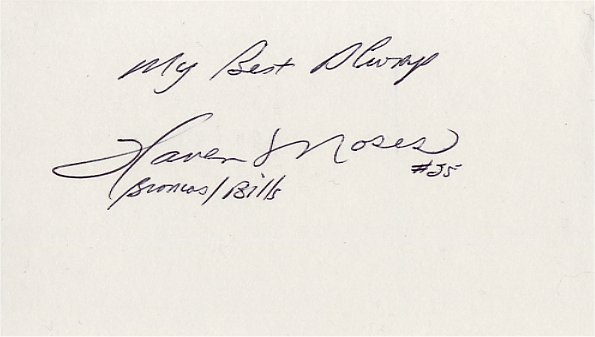 My Best Always
Haven J Moses
#25
Broncos/Bills